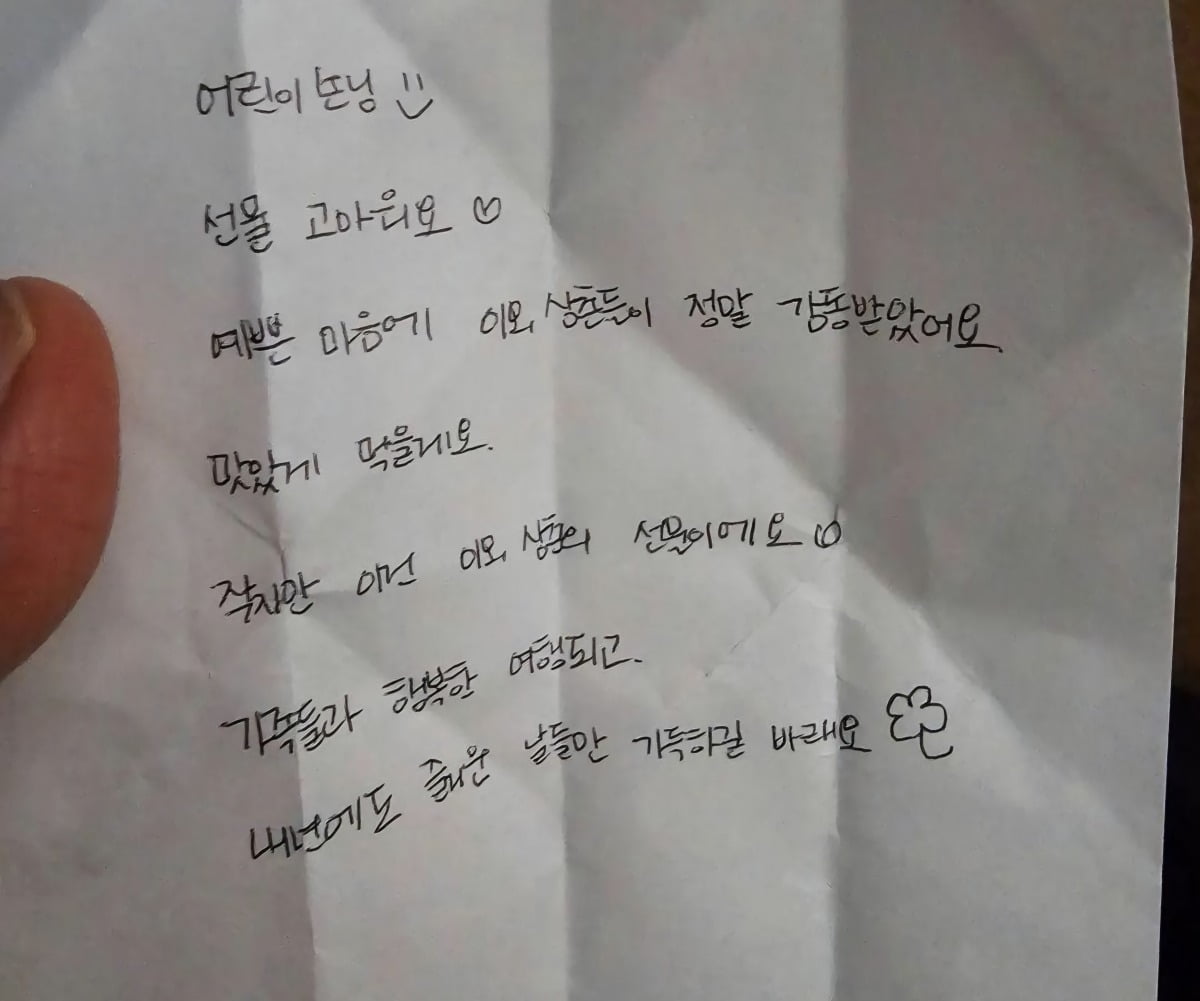 어린이 손님
선물 고마워요
예쁜 마음에 이모, 삼촌들이 정말 감동받았어요.
맛있게 먹을게요.
작지만 이건 이모, 삼촌의 선물이에요
가족들과 행복한 여행되고.
내년에도 즐거운 날들만 가득하길 바래요